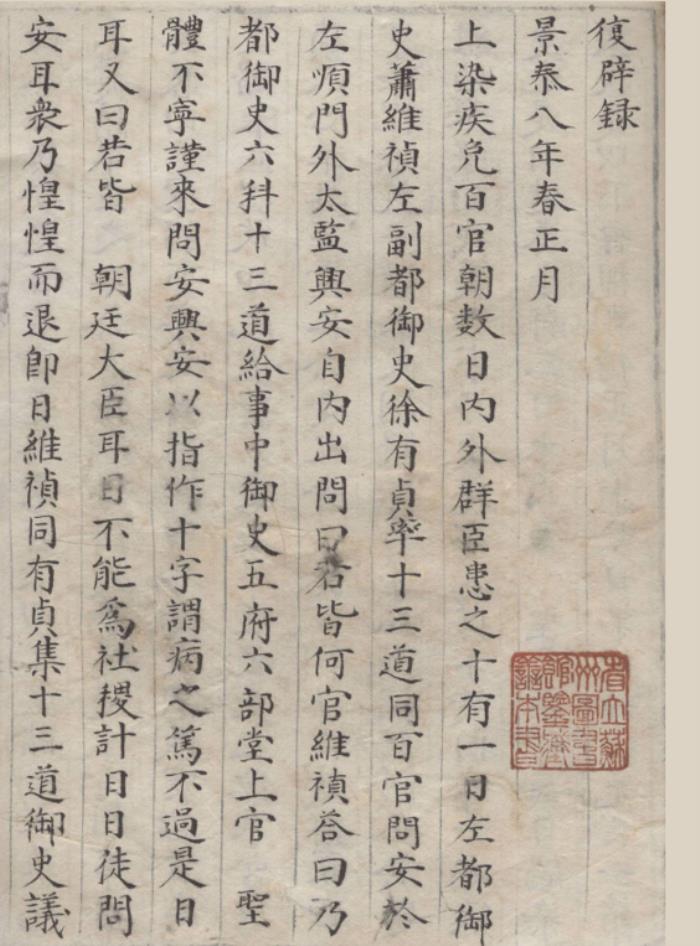 復辟録
景泰八年春正月
上染疾免百官朝数日内外群臣患之十有一日左都御
史蕭維禎左副都御史徐有貞率十三道同百官問安於
左順門外太監興安自内出問曰若皆何官維禎荅曰乃
都御史六科十三道給事中御史五府六部堂上官 聖
體不寧謹來問安興安以指作十字謂病之篤不過是日
耳又曰若皆 朝廷大臣耳日不能爲社稷計日日徒問
安耳衆乃惶惶而退卽日維禎同有貞集十三道御史議
省立蘇
州圖書
館鑒藏
善本書